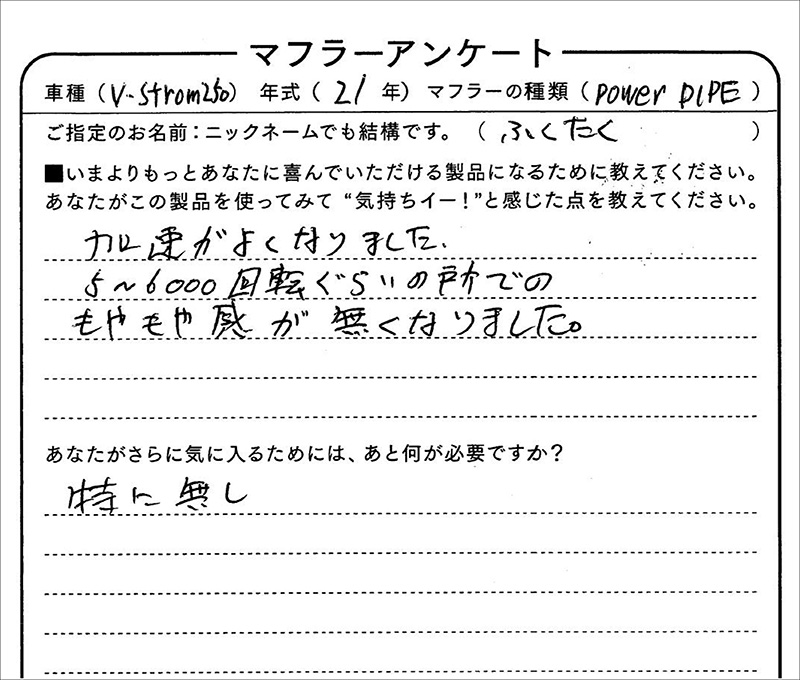 マフラーアンケート
車種（V-Strom250） 年式（21年） マフラーの種類（POWER PIPE）
ご指定のお名前：ニックネームでも結構です。（ふくたく）
■いまよりもっとあなたに喜んでいただける製品になるために教えてください。
あなたがこの製品を使ってみて “気持ちイー！”と感じた点を教えてください。
加速がよくなりました.
5～6000回転ぐらいの所での
もやもや感が無くなりました。
あなたがさらに気に入るためには、あと何が必要ですか？
特に無し